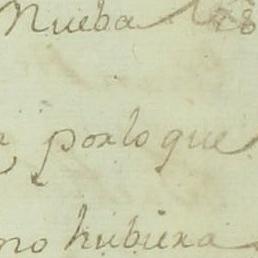 Nueba
porlo que
no hubiera